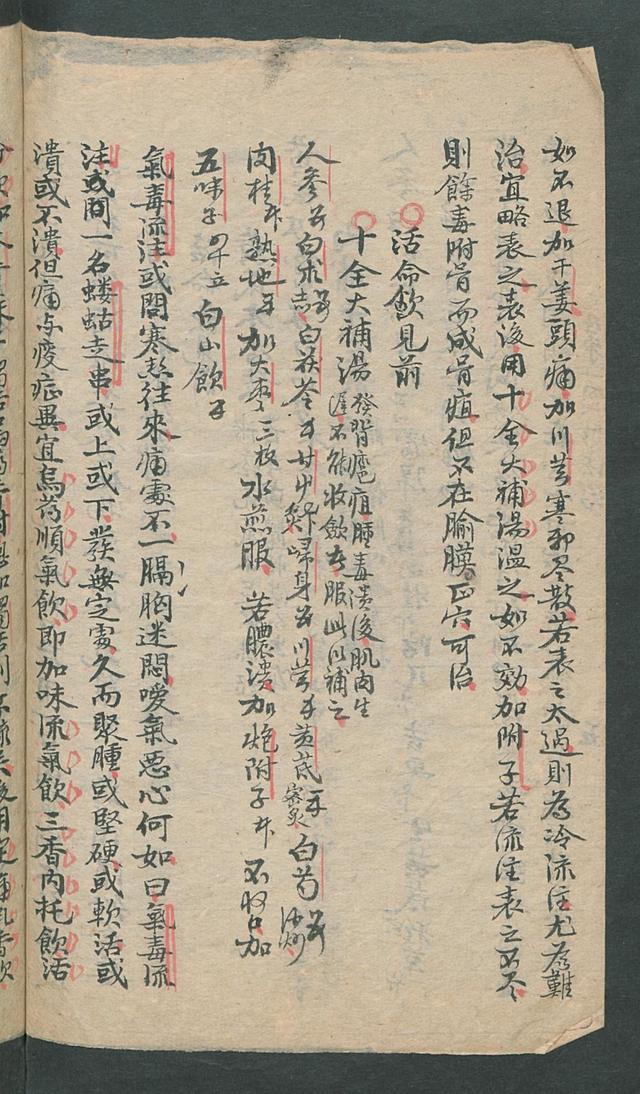 如不退加干姜頭痛加川芎寒邪尽散若表之太過則為冷流注尤為難
治宜略表之表後用十全大補湯温之如不効加附子若流注表之不尽
則餘毒附骨而成骨疽但不在腧膜正穴可治
活命飲見前
十全大補湯 發背癰疽腫毒潰後肌肉生遲不能收飲者服此以補之
人參 白朮 白茯苓 甘中 歸身 川芎 黄芪 蜜炙 白芍 炒
肉桂 熟地 加大枣三枚水煎服 若膿潰加炮附子 不收口加
五味子 白山飲
氣毒流注或問寒熱往來痛處不一膈胸迷悶噯氣恶心何如曰氣毒流
注或問一名蝼蛄走串或上或下發無定處久而聚腫或堅硬或軟活或
潰或不潰但痛与痠症異宜烏药順氣飲即加味流氣飲三香内托飲活